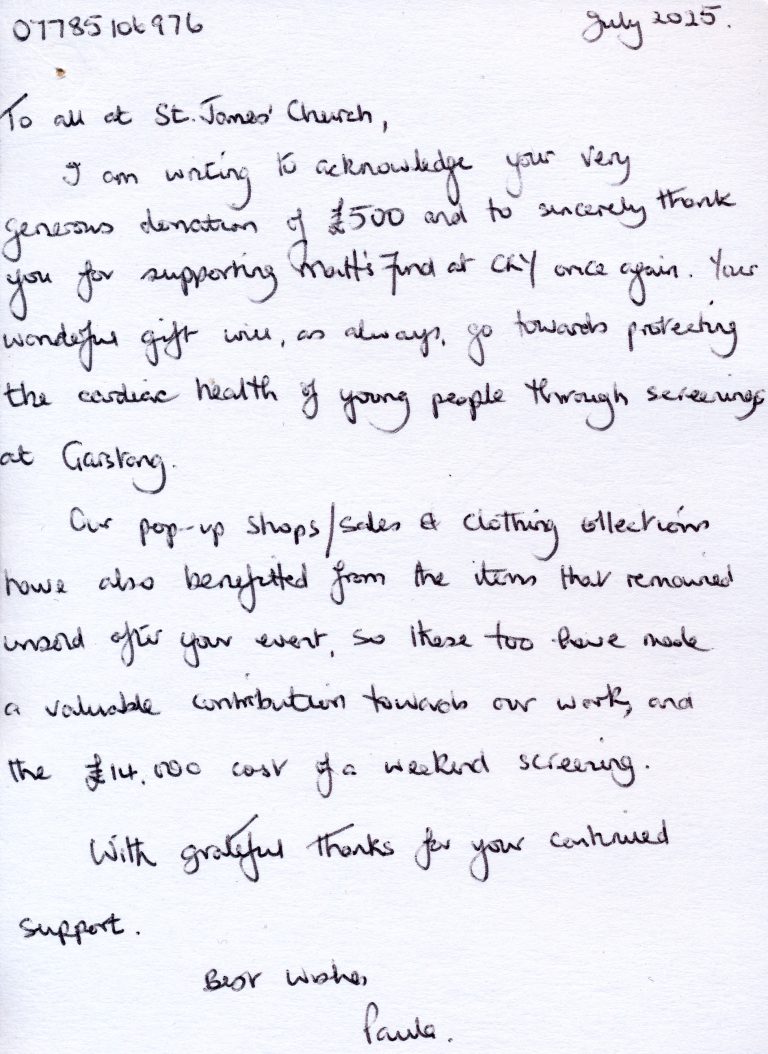 07785106976
July 2025.
To all at St. James' Church,
I am writing to acknowledge your very
generous donation of £500 and to sincerely thank
you for supporting Matt's Fund at CRY once again. Your
wonderful gift will, as always, go towards protecting
the cardiac health of young people through screenings
at Garstang.
Our pop-up shops/sales & clothing collections
have also benefitted from the items that remained
unsold after your event, so these too have made
a valuable contribution towards our work, and
the £14,000 cost of a weekend screening.
With grateful thanks for your continued
support.
Best wishes
Paula.